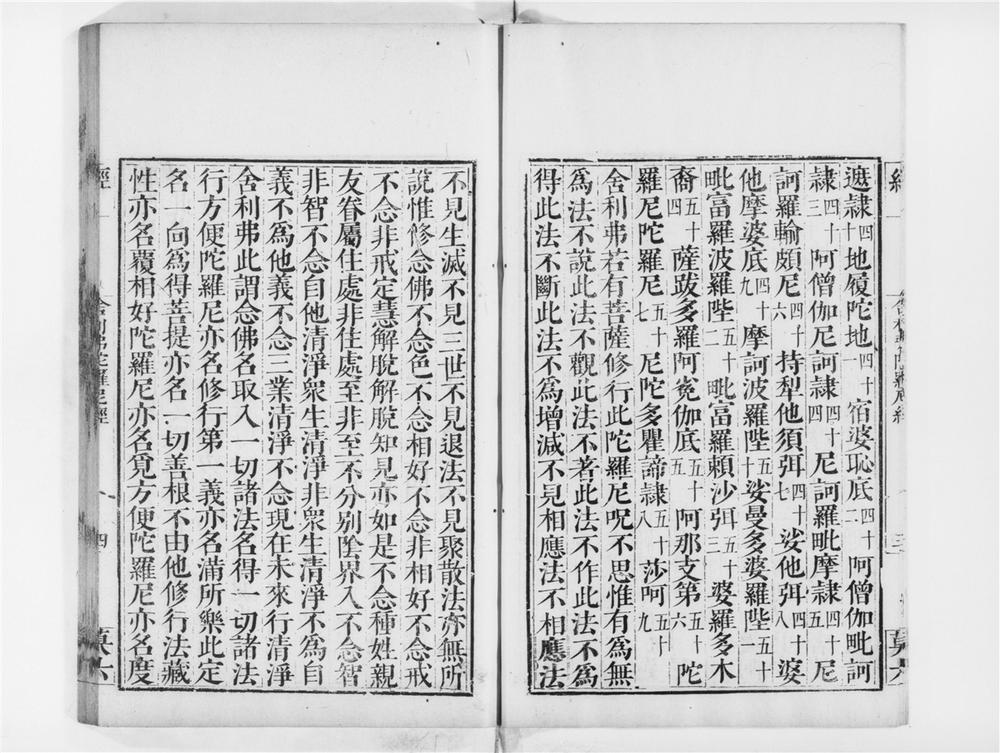 遮隸四十地履陀地四十一宿婆恥底四十二阿僧伽毗訶
隸四十三阿僧伽尼訶隸四十四尼訶羅毗摩隸四十五尼
訶羅輸頗尼四十六持犁他須弭四十七娑他弭四十八婆
他摩婆底四十九摩訶波羅陛五十娑曼多婆羅陛五十一
毗富羅波羅陛五十二毗富羅頼沙弭五十三婆羅多木
裔五十四薩跋多羅阿寃伽底五十五阿那支第五十六陀
羅尼陀羅尼五十七尼陀多瞿諦隸五十八莎呵五十九
舍利弗若有菩薩修行此陀羅尼呪不思惟有爲無
爲法不說此法不觀此法不著此法不作此法不爲
得此法不斷此法不爲增減不見相應法不相應法
不見生滅不見三世不見退法不見聚散法亦無所
說惟修念佛不念色不念相好不念非相好不念戒
不念非戒定慧解脫解脫知見亦如是不念種姓親
友眷屬住處非住處至非至不分別陰界入不念智
非智不念自他清淨衆生清淨非衆生清淨不爲自
義不爲他義不念三業清淨不念現在未來行清淨
舍利弗此謂念佛名取入一切諸法名得一切諸法
行方便陀羅尼亦名修行第一義亦名滿所樂此定
名一向爲得菩提亦名一切善根不由他修行法藏
性亦名覆相好陀羅尼亦名覓方便陀羅尼亦名度
經 舍利弗陀羅尼經 四 莫六